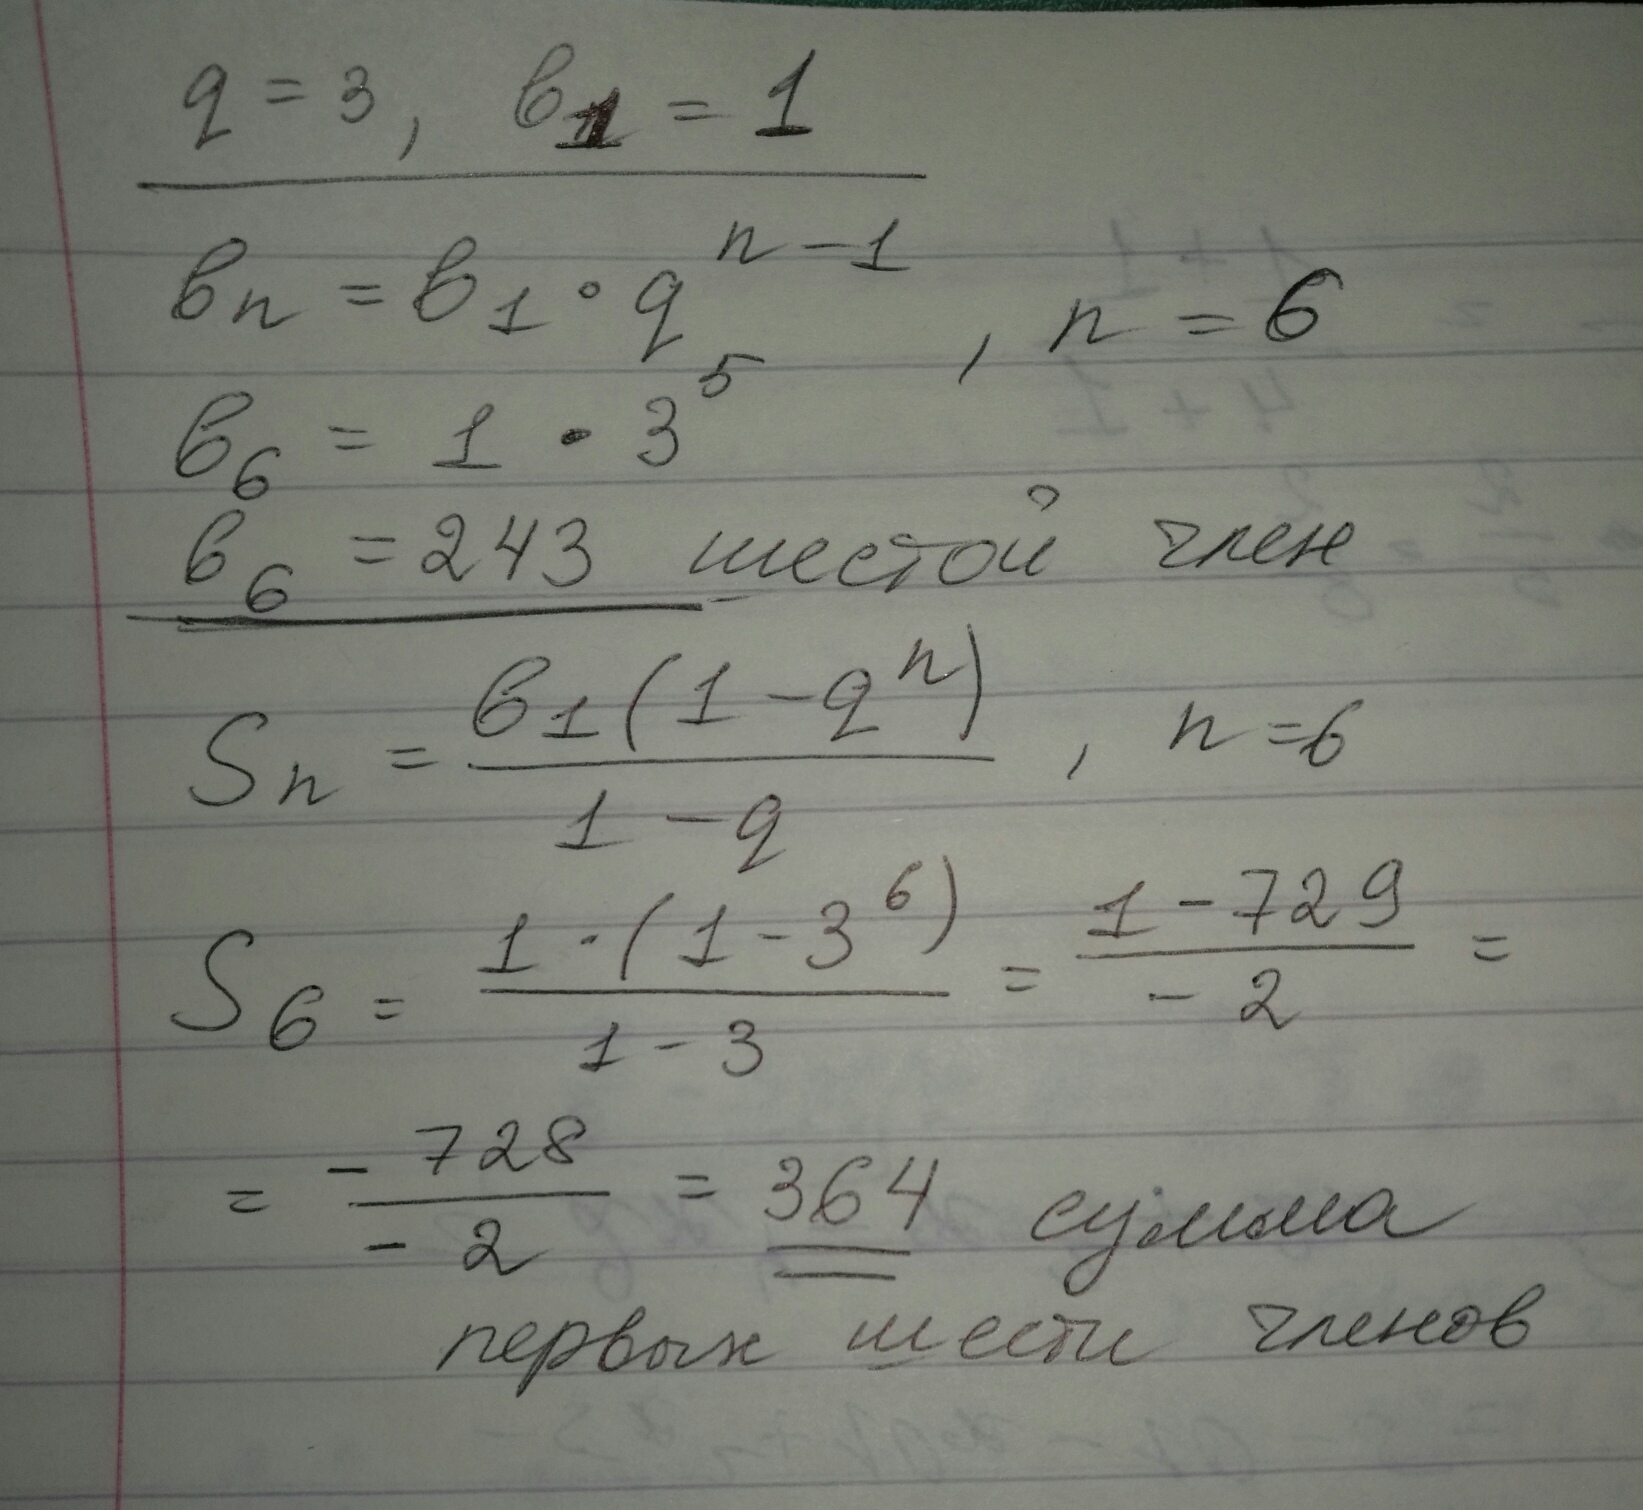 q = 3, в₁ = 1
вₙ = в₁ · qⁿ⁻¹, n = 6
в₆ = 1 · 3⁵
в₆ = 243 шестой член
Sₙ = в₁(1 - qⁿ) / 1 - q, n = 6
S₆ = 1 · (1 - 3⁶) / 1 - 3 = 1 - 729 / - 2 =
= - 728 / - 2 = 364 сумма
первых шести членов